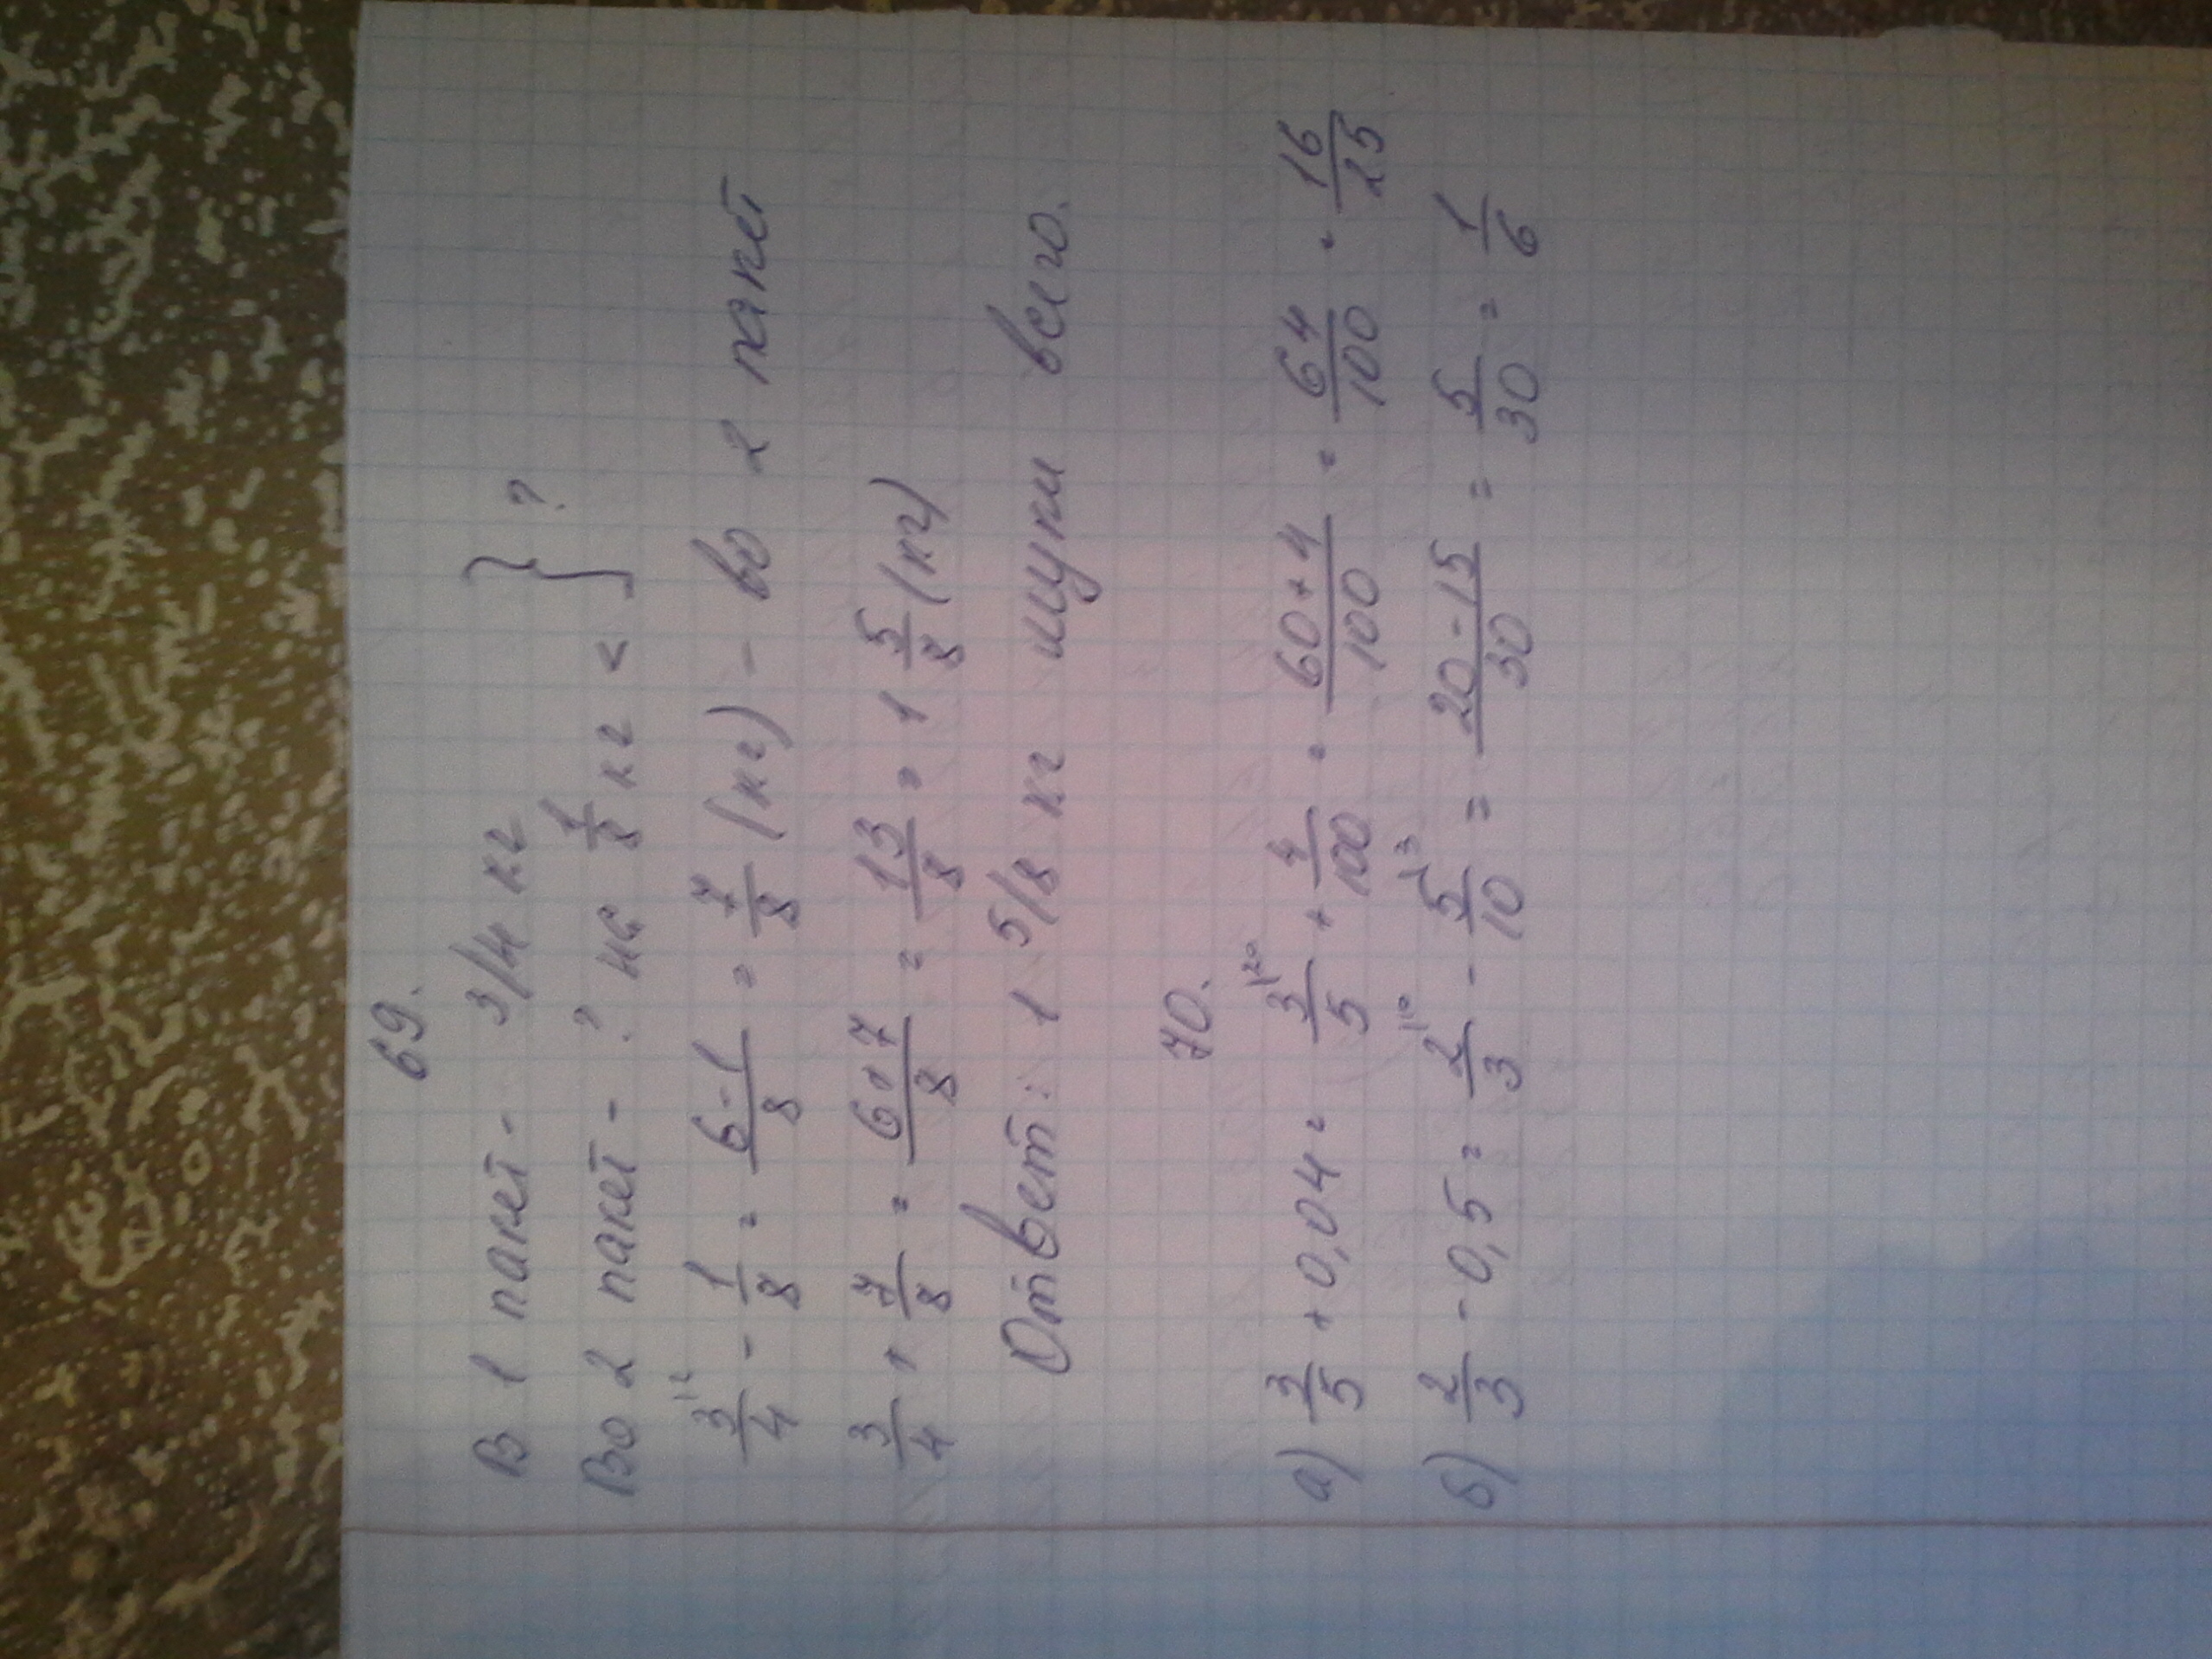 69.
В 1 пакет - 3/4 кг
Во 2 пакет - ? на 1/8 кг < } ?
3/4 |2 - 1/8 = 6-1/8 = 7/8 (кг) - во 2 пакет
3/4 + 7/8 = 6+7/8 = 13/8 = 1 5/8 (кг)
Ответ: 1 5/8 кг муки всего.
70.
а) 3/5 + 0,04 = 3/5 |20 + 4/100 = 60+4/100 = 64/100 = 16/25
б) 2/3 - 0,5 = 2/3 |10 - 5/10 |3 = 20-15/30 = 5/30 = 1/6